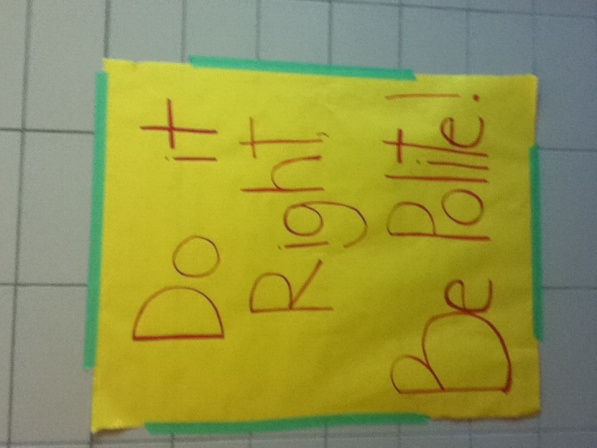 Do it
Right,
Be Polite!